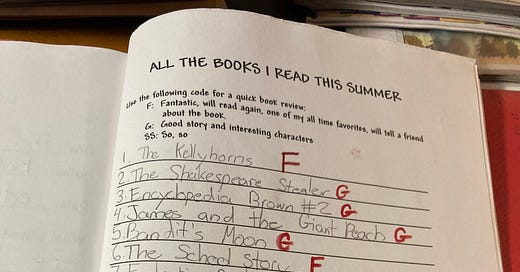 ALL THE BOOKS I READ THIS SUMMER
Use the following code for a quick book review:
F: Fantastic, will read again, one of my all time favorites, will tell a friend
about the book.
G: Good story and interesting characters
SS: So, so
1. The Kellyhorns F
2. The Shakespeare Stealer G
3. Encyclopedia Brown #2 G
4. James and the Giant Peach G
5. Bandit's Moon G
6. The School Story F